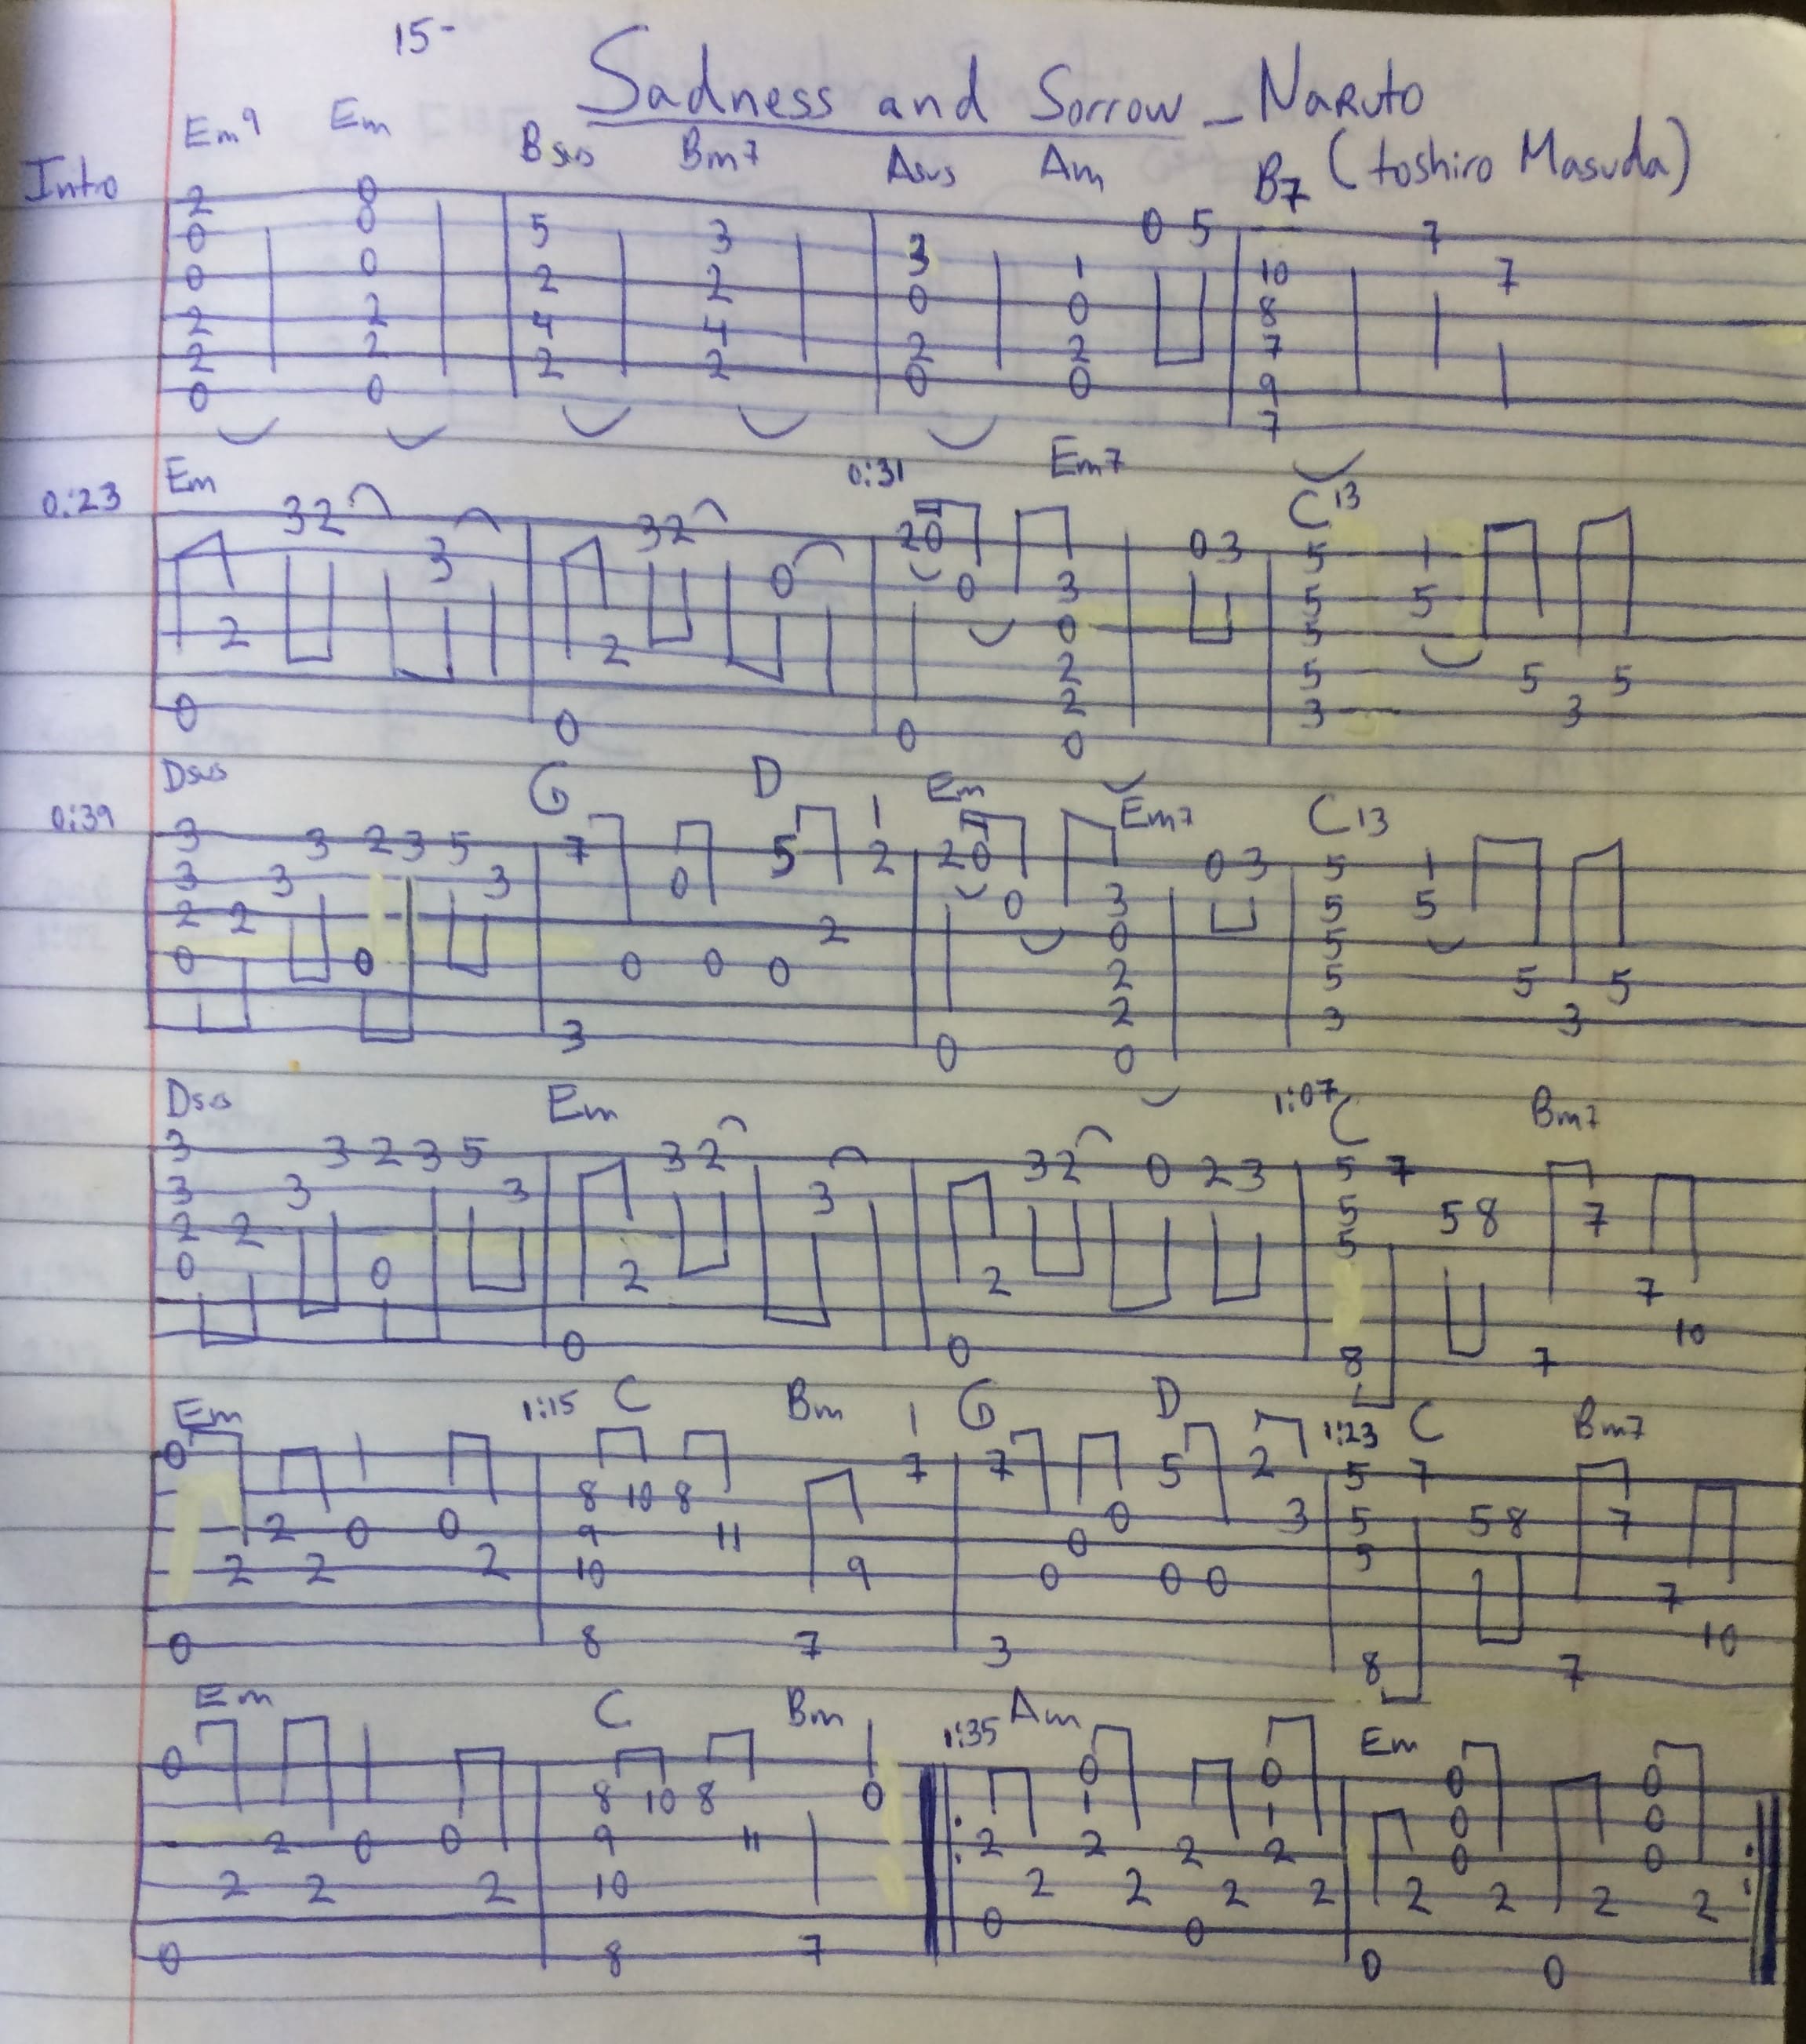 15-
Sadness and Sorrow - Naruto
(toshiro Masuda)
Intro Em9 Em Bsus Bm7 Asus Am B7
2 0 0 5
0 0 5 3 3 1 10 7 7
0 0 2 2 0 0 8
2 2 4 4 2 2 7
2 2 2 2 0 0 9
0 0 7
0:23 Em 0:31 Em7 C13
32 32 20 03 5
3 0 0 3 5 5
0 5
2 2 2 5 5 5
2 3 3
0 0 0 0
0:39 Dsus G D Em Em7 C13
3 3 2 3 5 7 5 2 20 03 5
3 3 3 0 0 3 5 5
2 2 2 0 5
0 0 0 0 0 2 5 5 5
2 3 3
3 0 0
Dsus Em 1:07 C Bm7
3 3 2 3 5 32 32 0 2 3 5 7
3 3 3 3 5 5 8 7
2 2 5
0 0 2 2 7
10
0 0 8 7
Em 1:15 C Bm G D 1:23 C Bm7
0 7 7 5 2 5 7
8 10 8 0 3 5 5 8 7
2 0 0 9 11 0 5
2 2 2 10 9 0 0 0 7
10
0 8 7 3 8 7
Em C Bm 1:35 Am Em
0 0 0 0 0
8 10 8 0 1 1 0 0
2 0 0 9 11 2 2 2 2 0 0
2 2 2 10 2 2 2 2 2 2 2 2
0 0
0 8 7 0 0